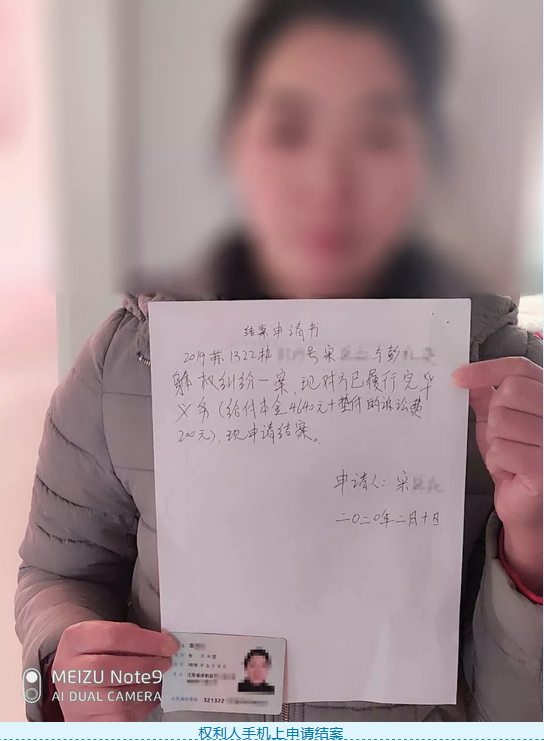 结案申请书
2019苏1322执 号宋 与彭
权纠纷一案,现对方已履行完毕
义务(给付本金4640元+垫付的诉讼费
200元),现申请结案。
申请人:宋
二〇二〇年二月十日
宋
321322
MEIZU Note9
AI DUAL CAMERA
权利人手机上申请结案